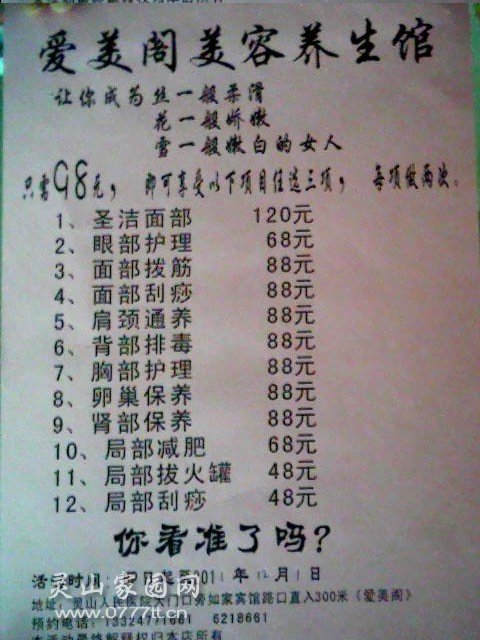 爱美阁美容养生馆
让你成为丝一般柔滑
花一般娇嫩
雪一般嫩白的女人
只需98元， 即可享受以下项目任选三项， 每项做两次。
1、圣洁面部 120元
2、眼部护理 68元
3、面部拨筋 88元
4、面部刮痧 88元
5、肩颈通养 88元
6、背部排毒 88元
7、胸部护理 88元
8、卵巢保养 88元
9、肾部保养 88元
10、局部减肥 68元
11、局部拔火罐 48元
12、局部刮痧 48元
你看准了吗?
活动时间： 年12月1日
地址：灵山人民医院大门口旁如家宾馆路口直入300米《爱美阁》
预约电话： 6218661
本活动最终解释权归本店所有
灵山家园网
www.0777tt.cn